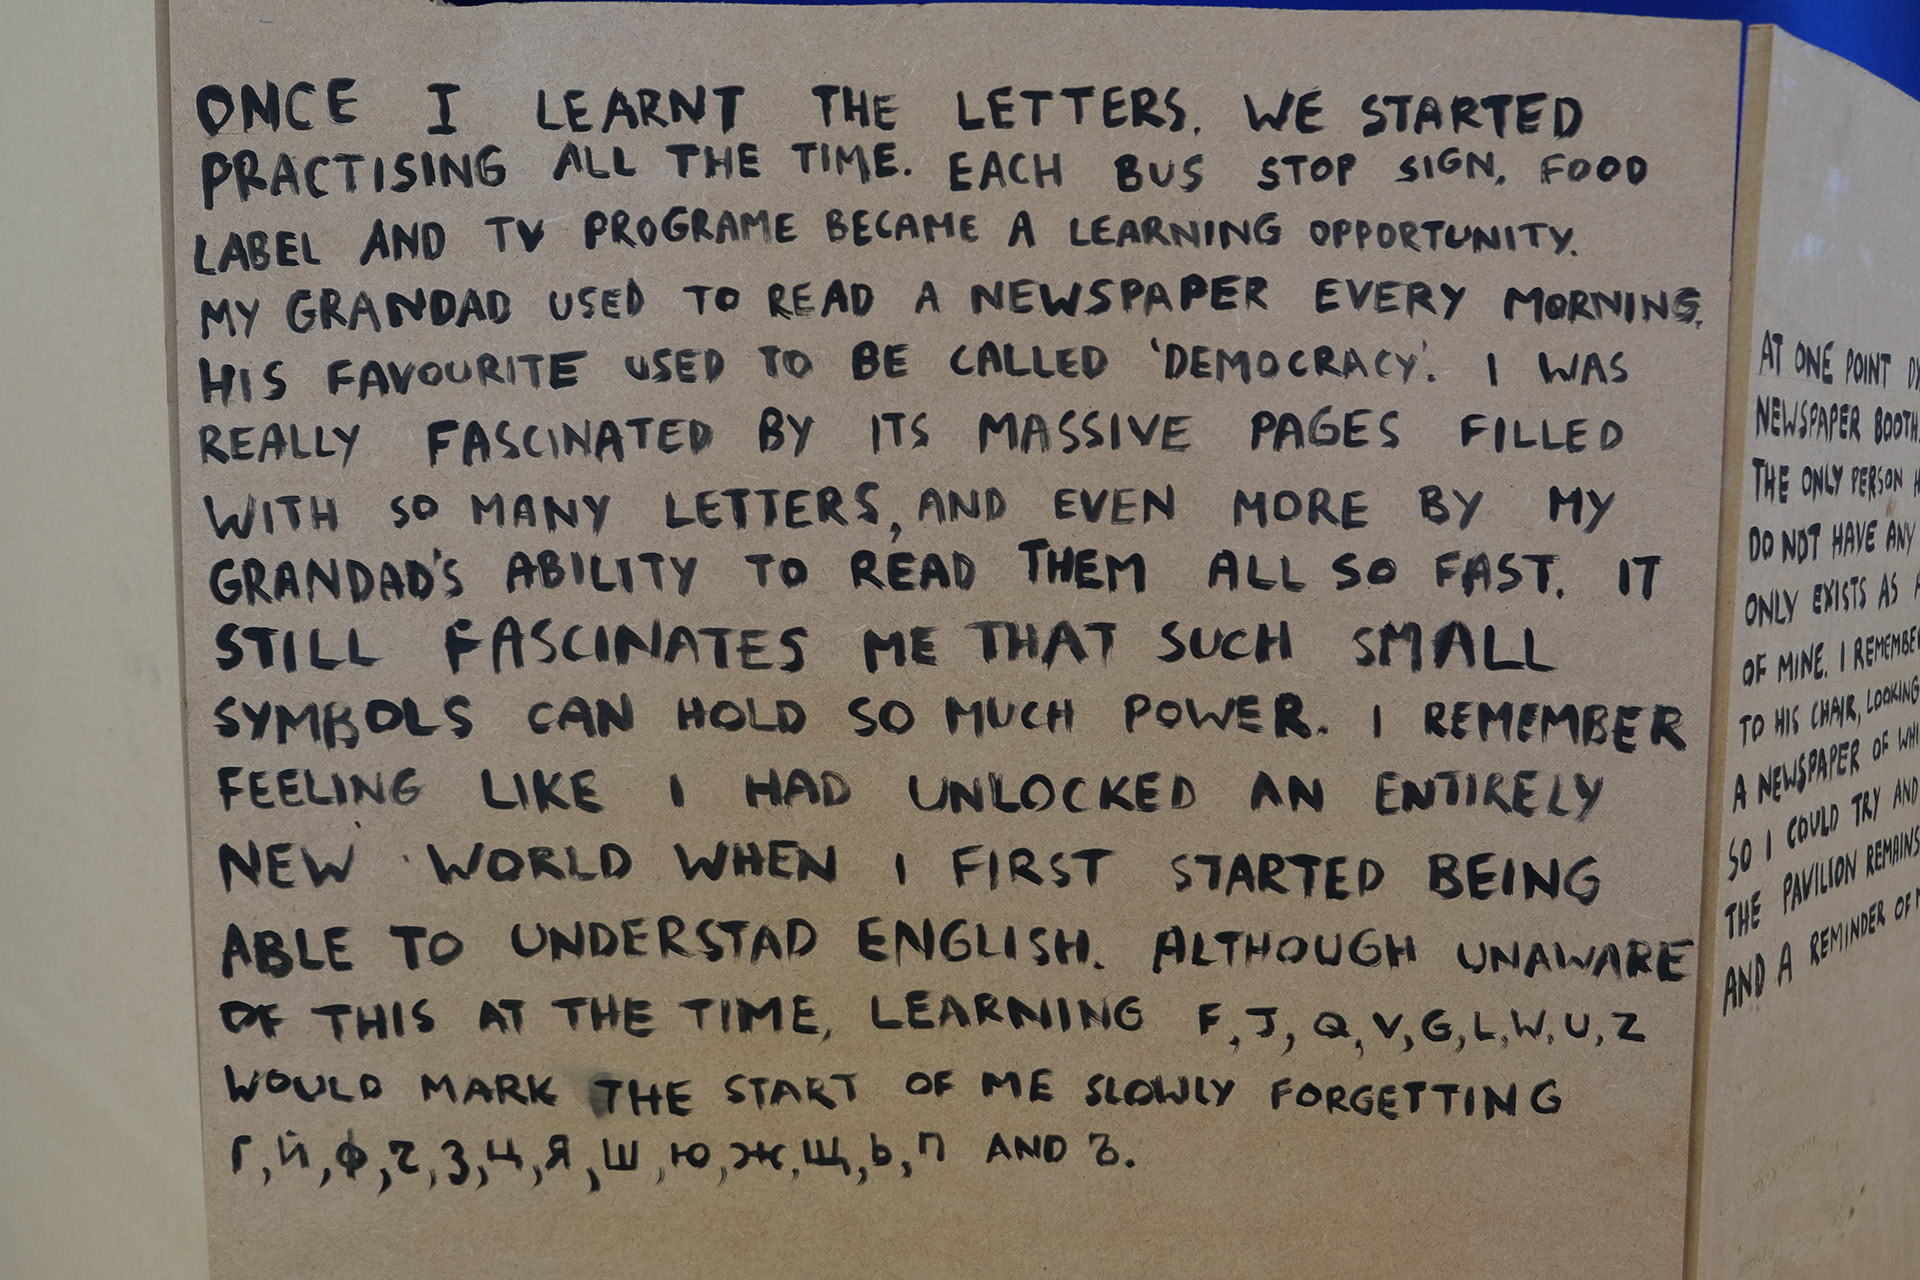 ONCE I LEARNT THE LETTERS, WE STARTED
PRACTISING ALL THE TIME. EACH BUS STOP SIGN, FOOD
LABEL AND TV PROGRAME BECAME A LEARNING OPPORTUNITY.
MY GRANDAD USED TO READ A NEWSPAPER EVERY MORNING.
HIS FAVOURITE USED TO BE CALLED 'DEMOCRACY'. I WAS
REALLY FASCINATED BY ITS MASSIVE PAGES FILLED
WITH SO MANY LETTERS, AND EVEN MORE BY MY
GRANDAD'S ABILITY TO READ THEM ALL SO FAST. IT
STILL FASCINATES ME THAT SUCH SMALL
SYMBOLS CAN HOLD SO MUCH POWER. I REMEMBER
FEELING LIKE I HAD UNLOCKED AN ENTIRELY
NEW WORLD WHEN I FIRST STARTED BEING
ABLE TO UNDERSTAD ENGLISH. ALTHOUGH UNAWARE
OF THIS AT THE TIME, LEARNING F, J, Q, V, G, L, W, U, Z
WOULD MARK THE START OF ME SLOWLY FORGETTING
Г, Й, Ф, Ч, З, Ц, Я, Ш, Ю, Ж, Щ, Ь, П AND Ъ.
AT ONE POINT
NEWSPAPER BOOTH
THE ONLY PERSON
DO NOT HAVE ANY
ONLY EXISTS AS
OF MINE. I REMEMBER
TO HIS CHAIR, LOOKING
A NEWSPAPER OF
SO I COULD TRY AND
THE PAVILION REMAINS
AND A REMINDER OF